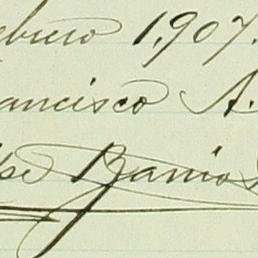 ebrero 1,907.
ancisco A.
se Barrio